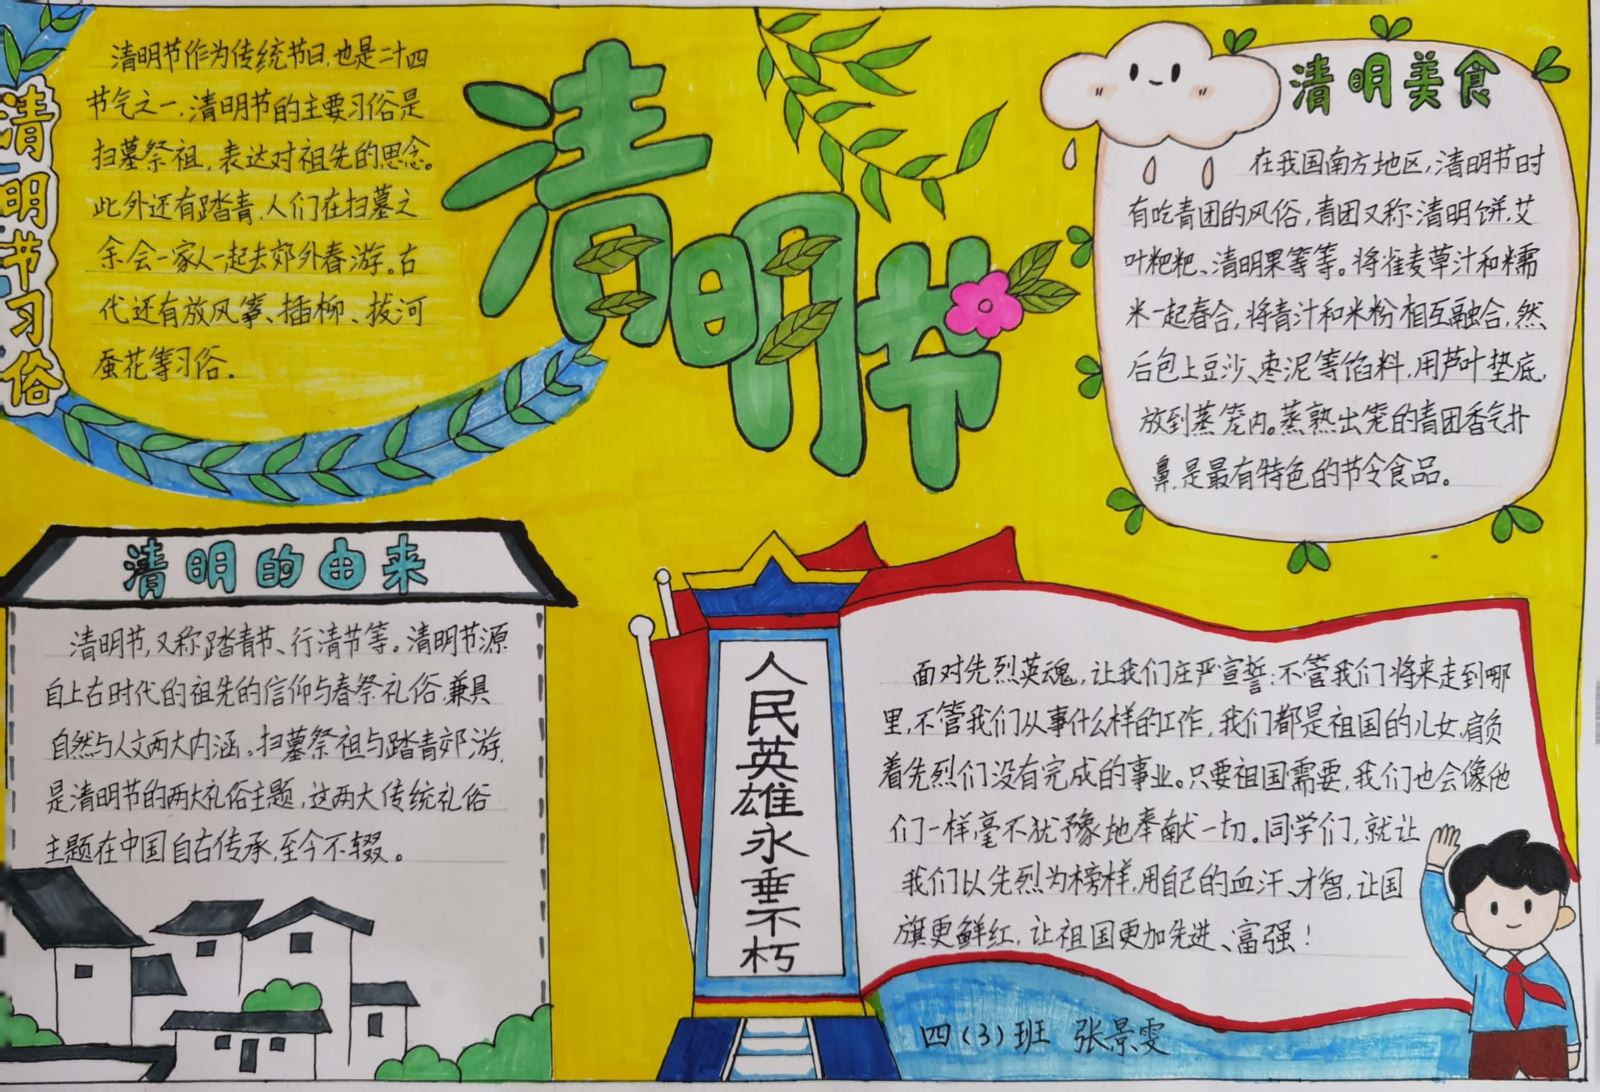 清明节
清明节习俗
清明节作为传统节日,也是二十四
节气之一,清明节的主要习俗是
扫墓祭祖,表达对祖先的思念。
此外还有踏青,人们在扫墓之
余会一家人一起去郊外春游。古
代还有放风筝、插柳、拔河
蚕花等习俗.
清明美食
在我国南方地区,清明节时
有吃青团的风俗,青团又称清明饼,艾
叶粑粑、清明果等等。将雀麦草汁和糯
米一起舂合,将青汁和米粉相互融合,然
后包上豆沙、枣泥等馅料,用芦叶垫底,
放到蒸笼内。蒸熟出笼的青团香气扑
鼻,是最有特色的节令食品。
清明的由来
清明节,又称踏青节、行清节等。清明节源
自上古时代的祖先的信仰与春祭礼俗,兼具
自然与人文两大内涵。扫墓祭祖与踏青郊游,
是清明节的两大礼俗主题,这两大传统礼俗
主题在中国自古传承,至今不辍。
人民英雄永垂不朽
面对先烈英魂,让我们庄严宣誓:不管我们将来走到哪
里,不管我们从事什么样的工作,我们都是祖国的儿女,肩负
着先烈们没有完成的事业。只要祖国需要,我们也会像他
们一样毫不犹豫地奉献一切。同学们,就让
我们以先烈为榜样,用自己的血汗、才智,让国
旗更鲜红,让祖国更加先进、富强!
四(3)班 张景雯